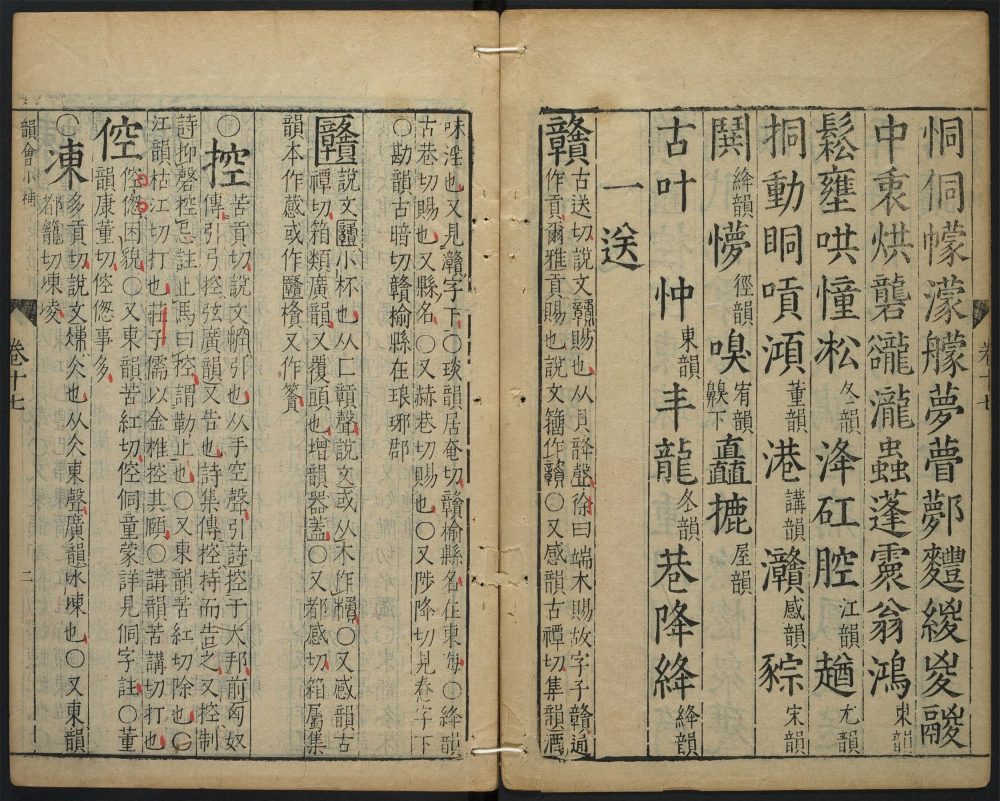 恫侗幪濛艨夢瞢鄸麷緵㚇融
中衷烘礱瀧蟲蓬霥翁鴻東韻
鬆壅哄憧松冬韻洚矼腔江韻趥尤韻
挏動眮嗊澒董韻港講韻灨感韻粽宋韻
鬨絳韻懜徑韻嗅宥韻齅下矗摝屋韻
古叶 忡東韻丰龍冬韻巷降絳絳韻
一送
贛古送切說文賜也从貝聲徐曰端木賜故字子贛通
作貢爾雅貢賜也說文籀作○又感韻古禫切集韻酒
味淫也又見灨字下○琰韻居奄切贛榆縣名在東海○絳韻
古巷切賜也又縣名○又赫巷切賜也○又陟降切見舂字下
○勘韻古暗切贛榆縣在琅邪郡
說文小杯也从匚贛聲說文或从木作○又感韻古
禫切箱類廣韻又覆頭也增韻器蓋○又都感切箱屬集
韻本作或作又作
○控苦貢切說文引也从手空聲引詩控于大邦前匈奴
傳引弓控弦廣韻又告也詩集傳控持而告之又控制
詩抑磬控忌註止馬曰控謂勒止也○又東韻苦紅切除也○
江韻枯江切打也莊子儒以金椎控其頤○講韻苦講切打也
倥倥傯困貌○又東韻苦紅切倥侗童蒙詳見侗字註○董
韻康董切倥傯事多
○凍多貢切說文仌也从仌東聲廣韻冰凍也○又東韻
都籠切凍凌
韻會小補
卷十七
二
卷十七